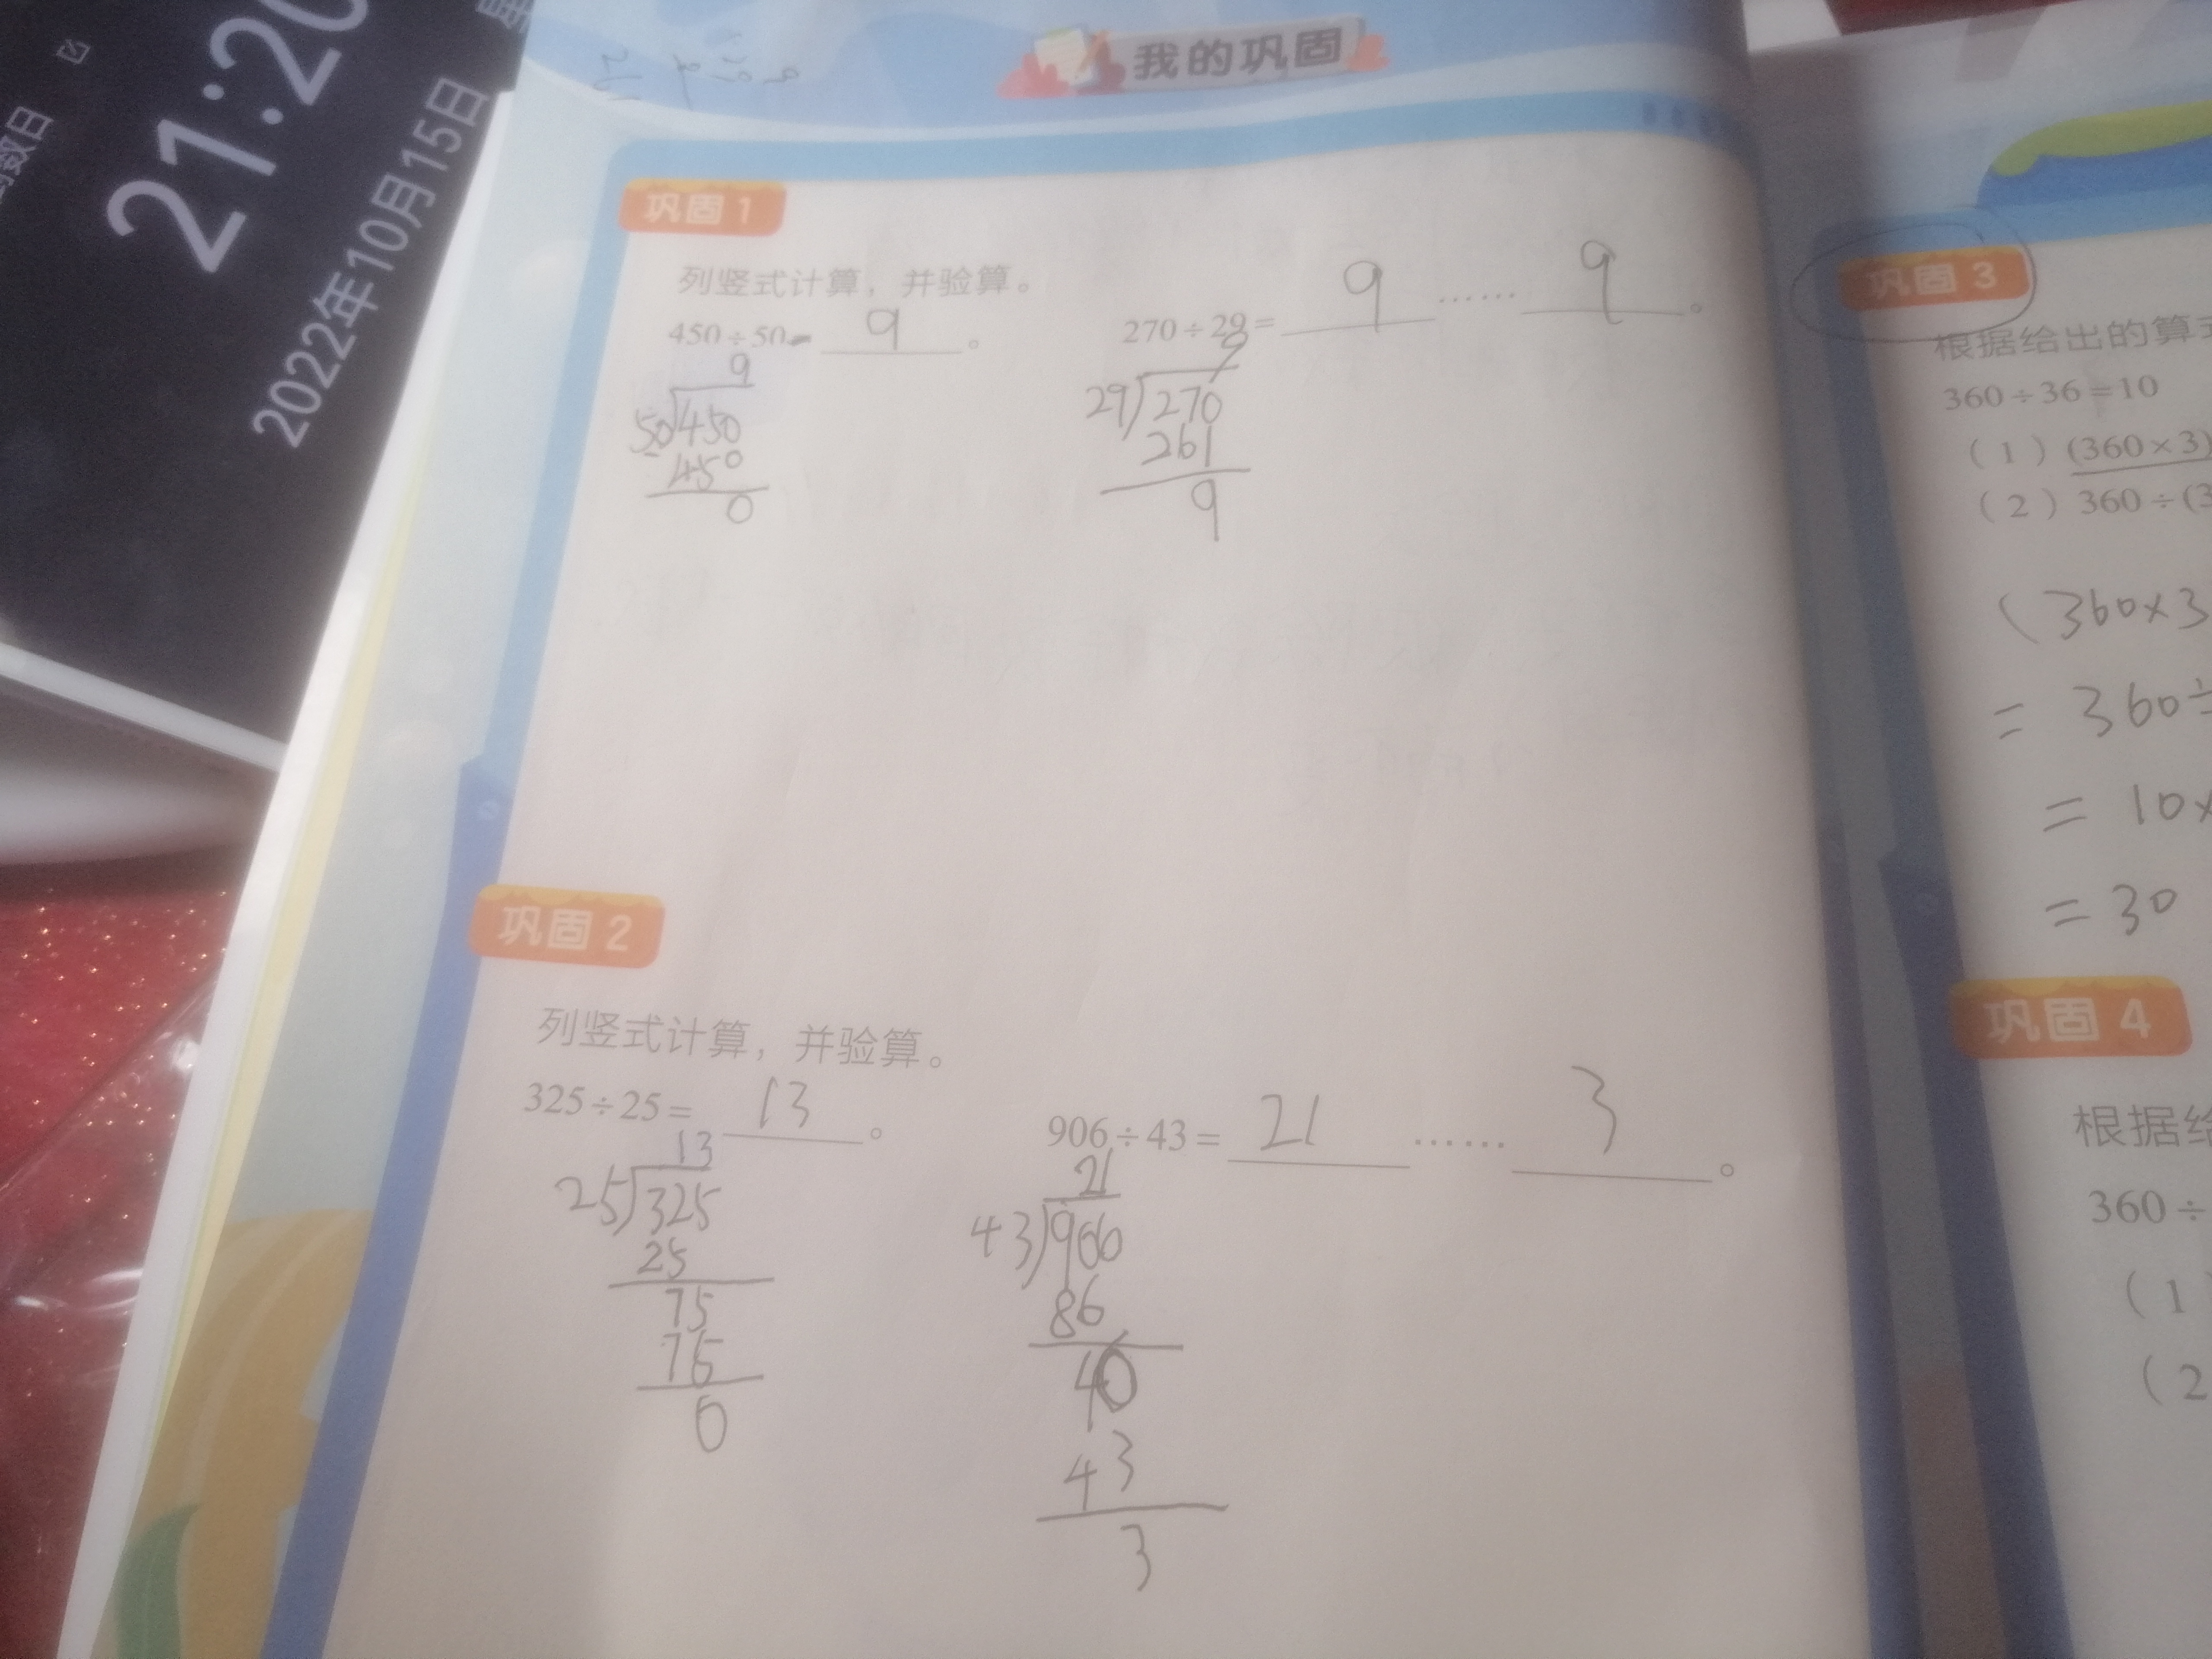 21:20
2022年10月15日
我的巩固
巩固 1
列竖式计算，并验算。
450÷50= 9 。
9
50 450
450
0
270÷29= 9 …… 9 。
9
29 270
261
9
巩固 2
列竖式计算，并验算。
325÷25= 13 。
13
25 325
25
75
75
0
906÷43= 21 …… 3 。
21
43 906
86
40
43
3
巩固 3
根据给出的算
360÷36=10
（1）(360×3)
（2）360÷(3
(360×3
= 360÷
= 10×
= 30
巩固 4
根据给
360÷
（1
（2